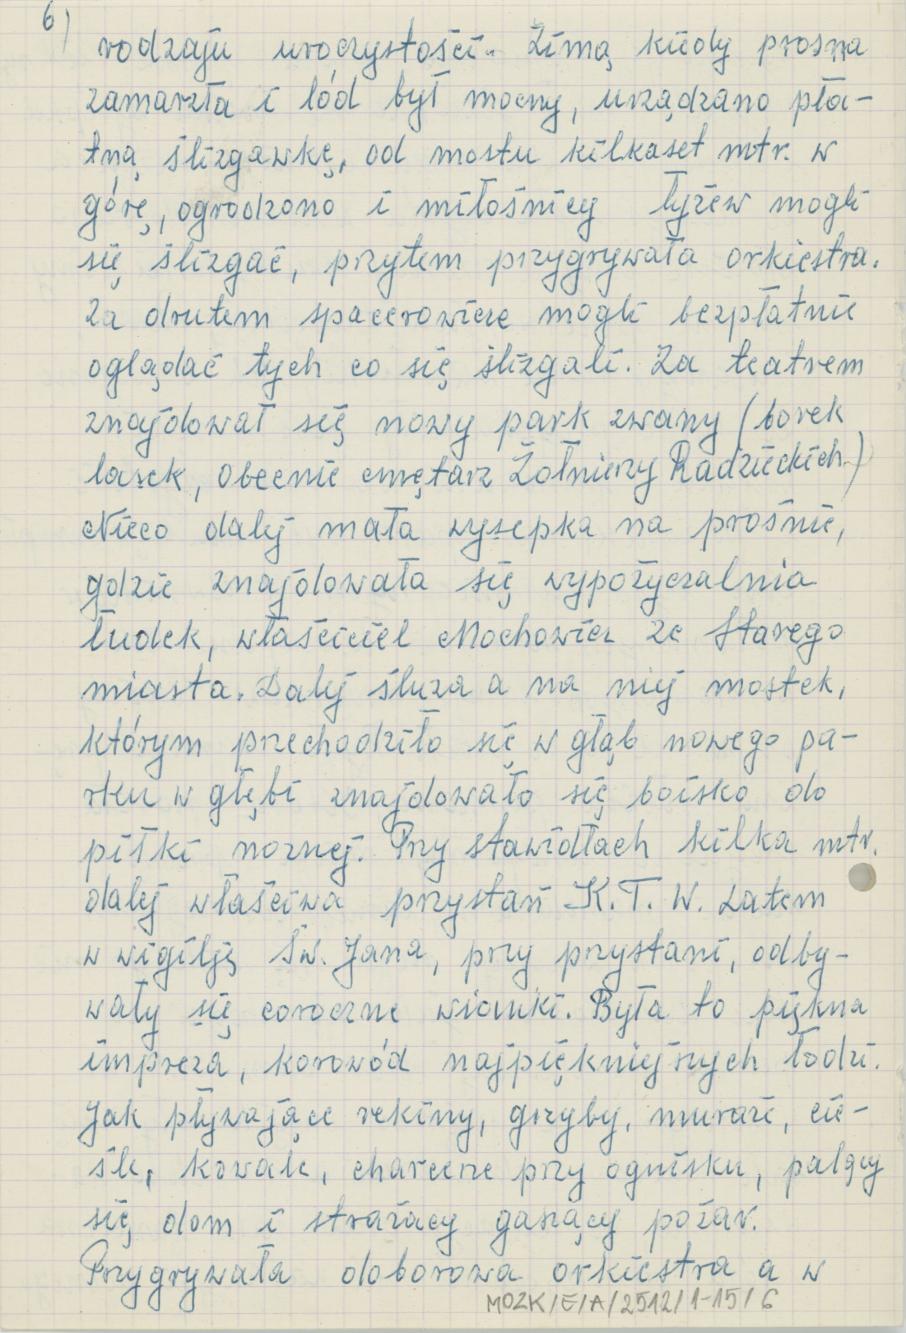 6)
rodzaju uroczystości. Zimą kiedy prosna
zamarzła i lód był mocny, urządzano pła-
tną ślizgawkę, od mostu kilkaset mtr. w
górę, ogrodzono i miłośnicy łyżew mogli
się ślizgać, przytem przygrywała orkiestra.
Za drutem spacerowicze mogli bezpłatnie
oglądać tych co się ślizgali. Za teatrem
znajdował się nowy park zwany (borek
lasek, obecnie cmętarz Żołnierzy Radzieckich)
Nieco dalej mała wysepka na prośnie,
gdzie znajdowała się wypożyczalnia
łudek, właściciel Mochowicz ze starego
miasta. Dalej śluza a na niej mostek,
którym przechodziło się w głąb nowego pa-
rku w głębi znajdowało się boisko do
piłki nożnej. Przy stawidłach kilka mtr.
dalej właściwa przystań K.T.W. Latem
w wigilję Św. Jana, przy przystani, odby-
wały się coroczne wianki. Była to piękna
impreza, korowód najpiękniejszych łodzi.
Jak pływające rekiny, grzyby, murarze, cie-
śle, kowale, charcerze przy ognisku, palący
się dom i strażacy gaszący pożar.
Przygrywała doborowa orkiestra a w
MOZK/E/A/2512/1-15/6